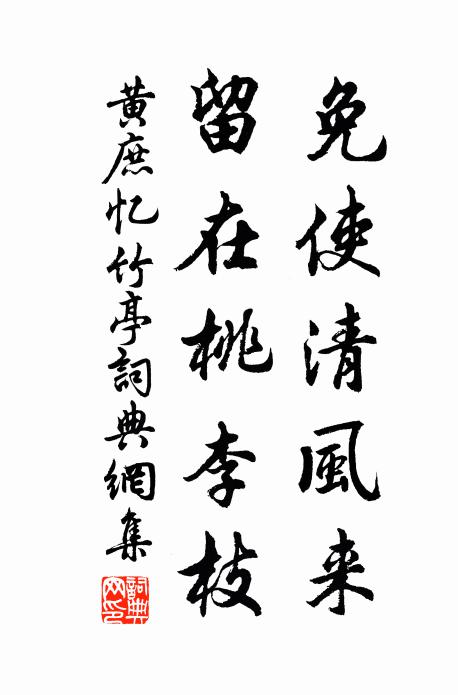 免使清風来
留在桃李枝
黃庶忆竹亭詞典網集
詞典网印